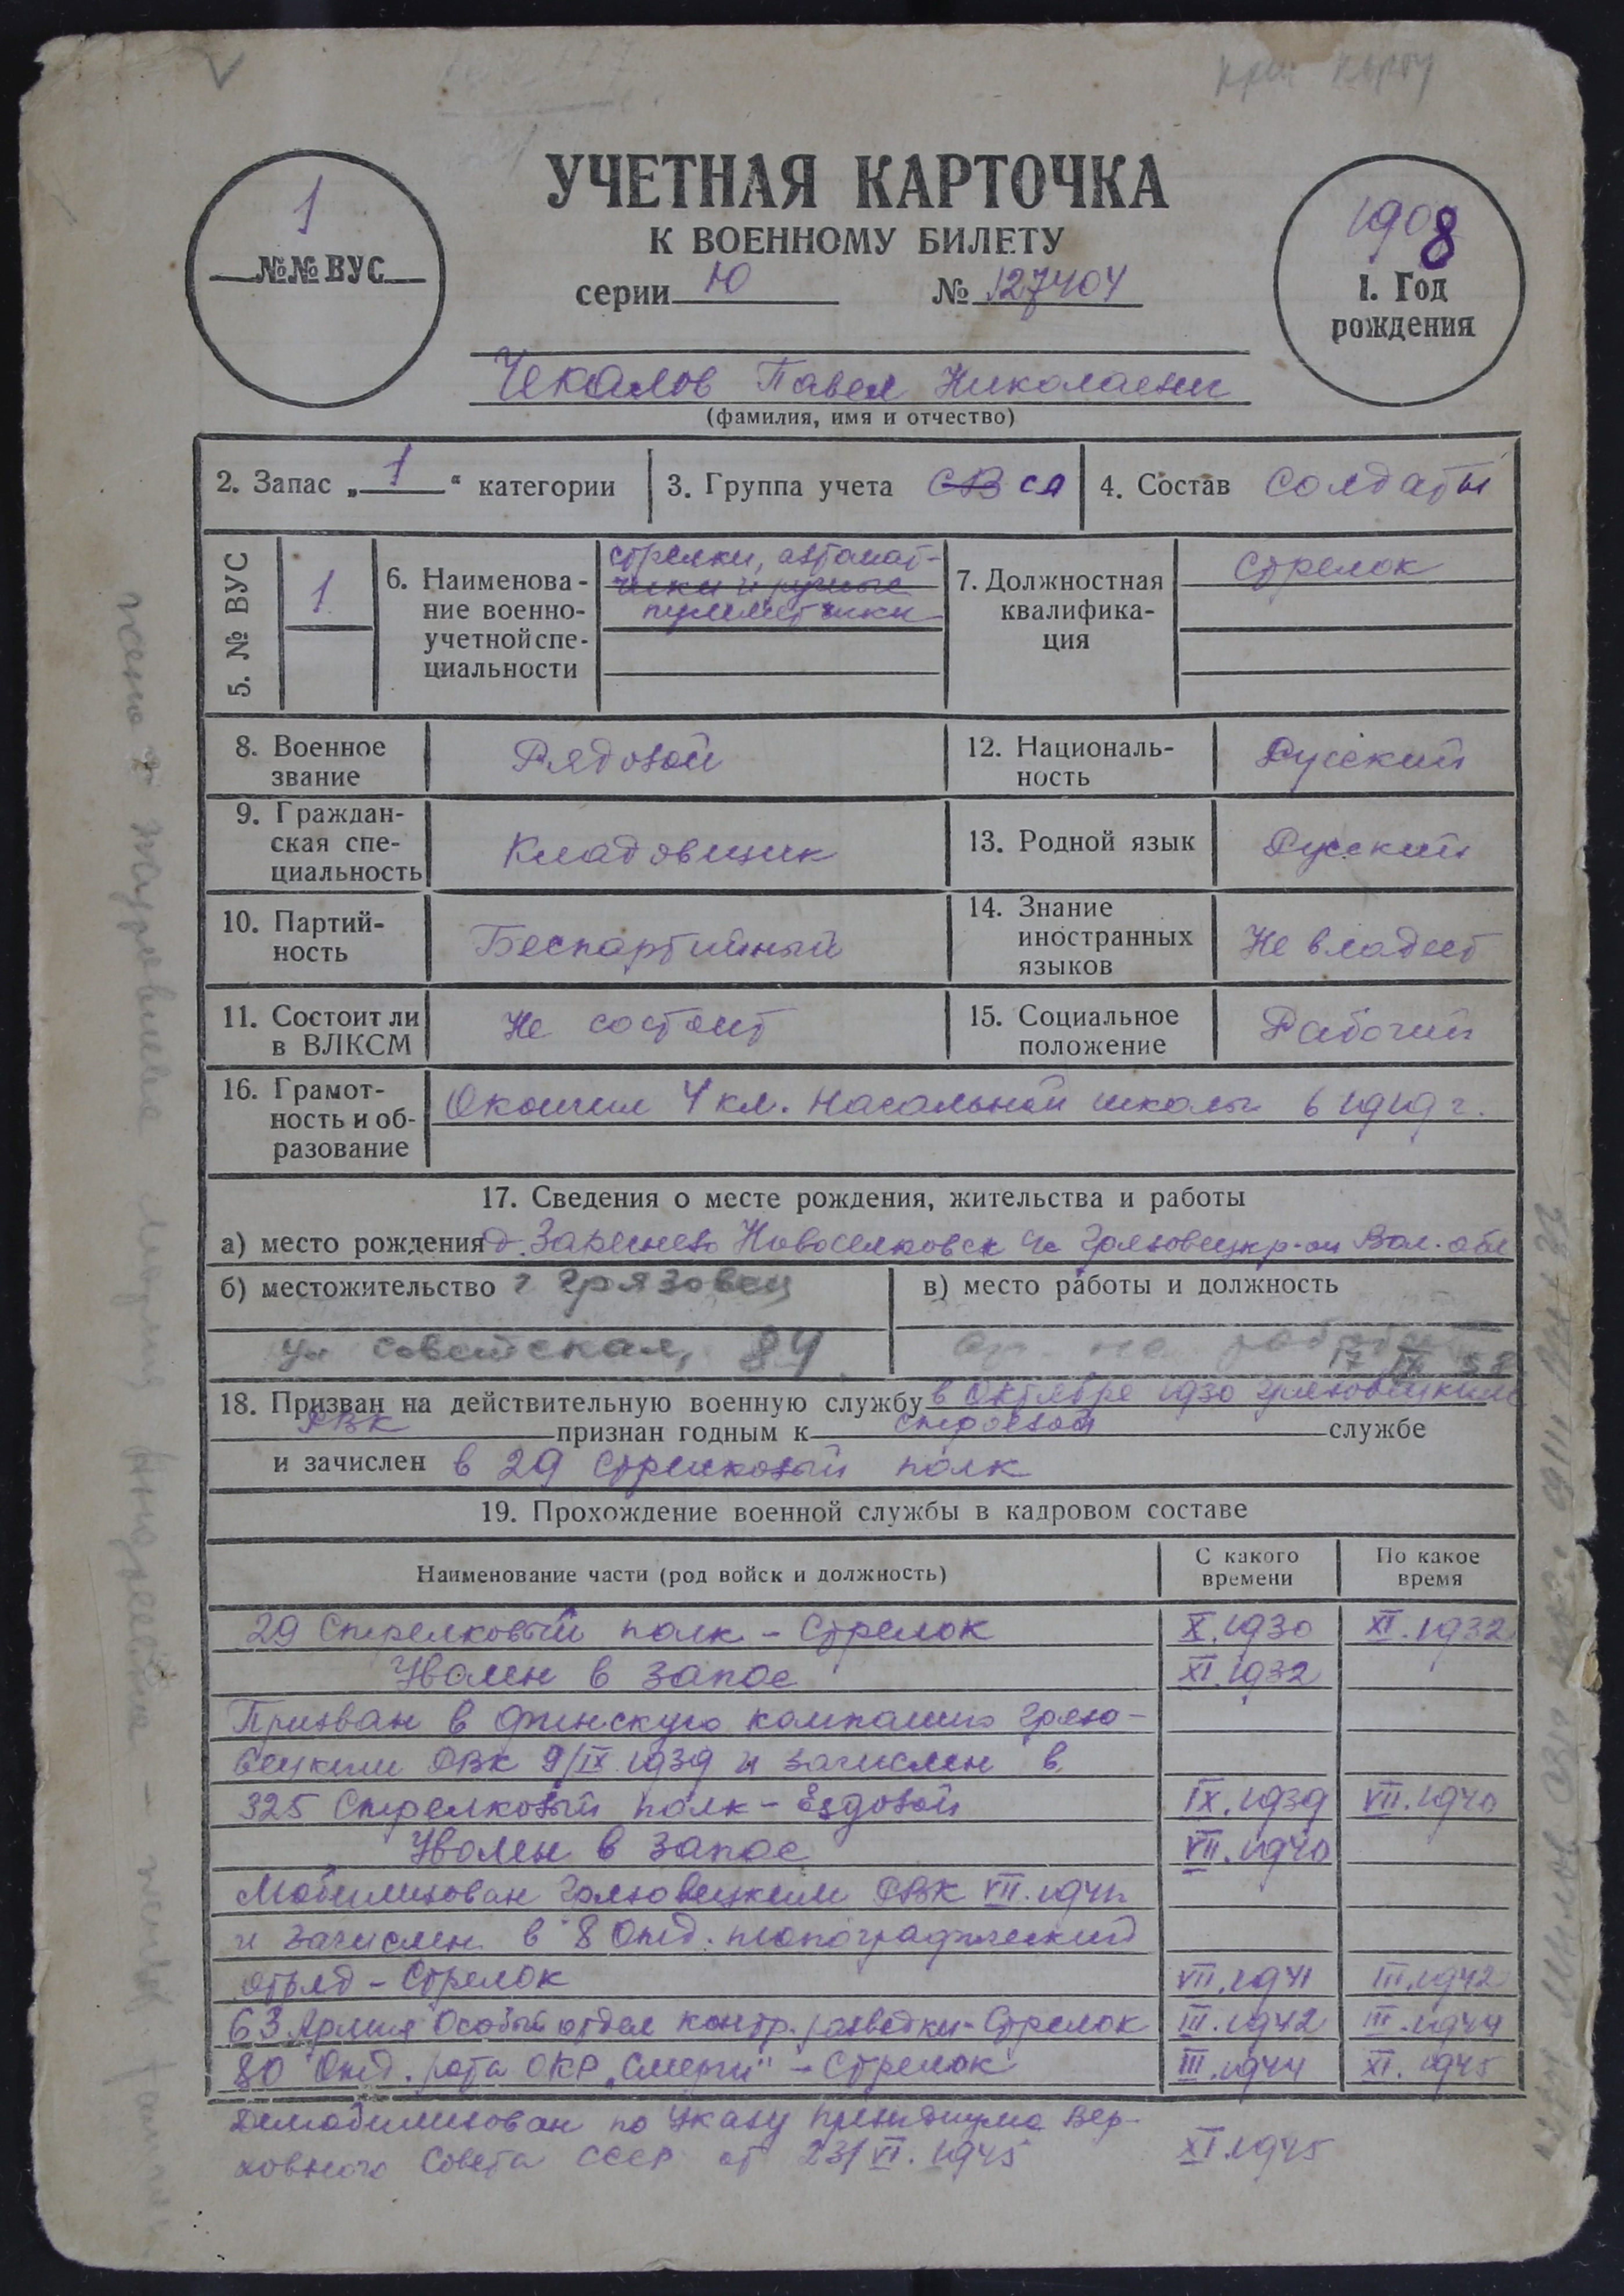 УЧЕТНАЯ КАРТОЧКА
К ВОЕННОМУ БИЛЕТУ
серии Ю № 127404
1
№№ ВУС
1908
1. Год
рождения
Чекалов Павел Николаевич
(фамилия, имя и отчество)
2. Запас „1“ категории
3. Группа учета СВ СА
4. Состав солдаты
5. № ВУС
1
6. Наименова-
ние военно-
учетной спе-
циальности
стрелки, автомат-
чики и ручные
пулеметчики
7. Должностная
квалифика-
ция
Стрелок
8. Военное
звание
Рядовой
12. Националь-
ность
Русский
9. Граждан-
ская спе-
циальность
Кладовщик
13. Родной язык
Русский
10. Партий-
ность
Беспартийный
14. Знание
иностранных
языков
Не владеет
11. Состоит ли
в ВЛКСМ
Не состоит
15. Социальное
положение
Рабочий
16. Грамот-
ность и об-
разование
Окончил 4 кл. начальной школы в 1919 г.
17. Сведения о месте рождения, жительства и работы
а) место рождения д. Новоселковск с/с Грязовецк р-он Вол. обл
б) местожительство г Грязовец
ул Советская, 84
в) место работы и должность
не работает
18. Призван на действительную военную службу в Октябре 1930 Грязовецким
РВК признан годным к строевой службе
и зачислен в 29 стрелковый полк
19. Прохождение военной службы в кадровом составе
Наименование части (род войск и должность)
С какого
времени
По какое
время
29 Стрелковый полк - Стрелок X.1930 XI.1932
Уволен в запас XI.1932
Призван в финскую компанию Грязо-
вецким РВК 9/IX.1939 и зачислен в
325 Стрелковый полк - Ездовой IX.1939 VII.1940
Уволен в запас VII.1940
Мобилизован Грязовецким РВК VII.1941
и зачислен в 8 Отд. топографический
отряд - Стрелок VII.1941 III.1942
63 Армия Особый отдел контр. разведки - Стрелок III.1942 III.1944
80 Отд. рота ОКР „Смерш" - Стрелок III.1944 XI.1945
Демобилизован по Указу Президиума Вер-
ховного Совета СССР от 23/VI.1945 XI.1945